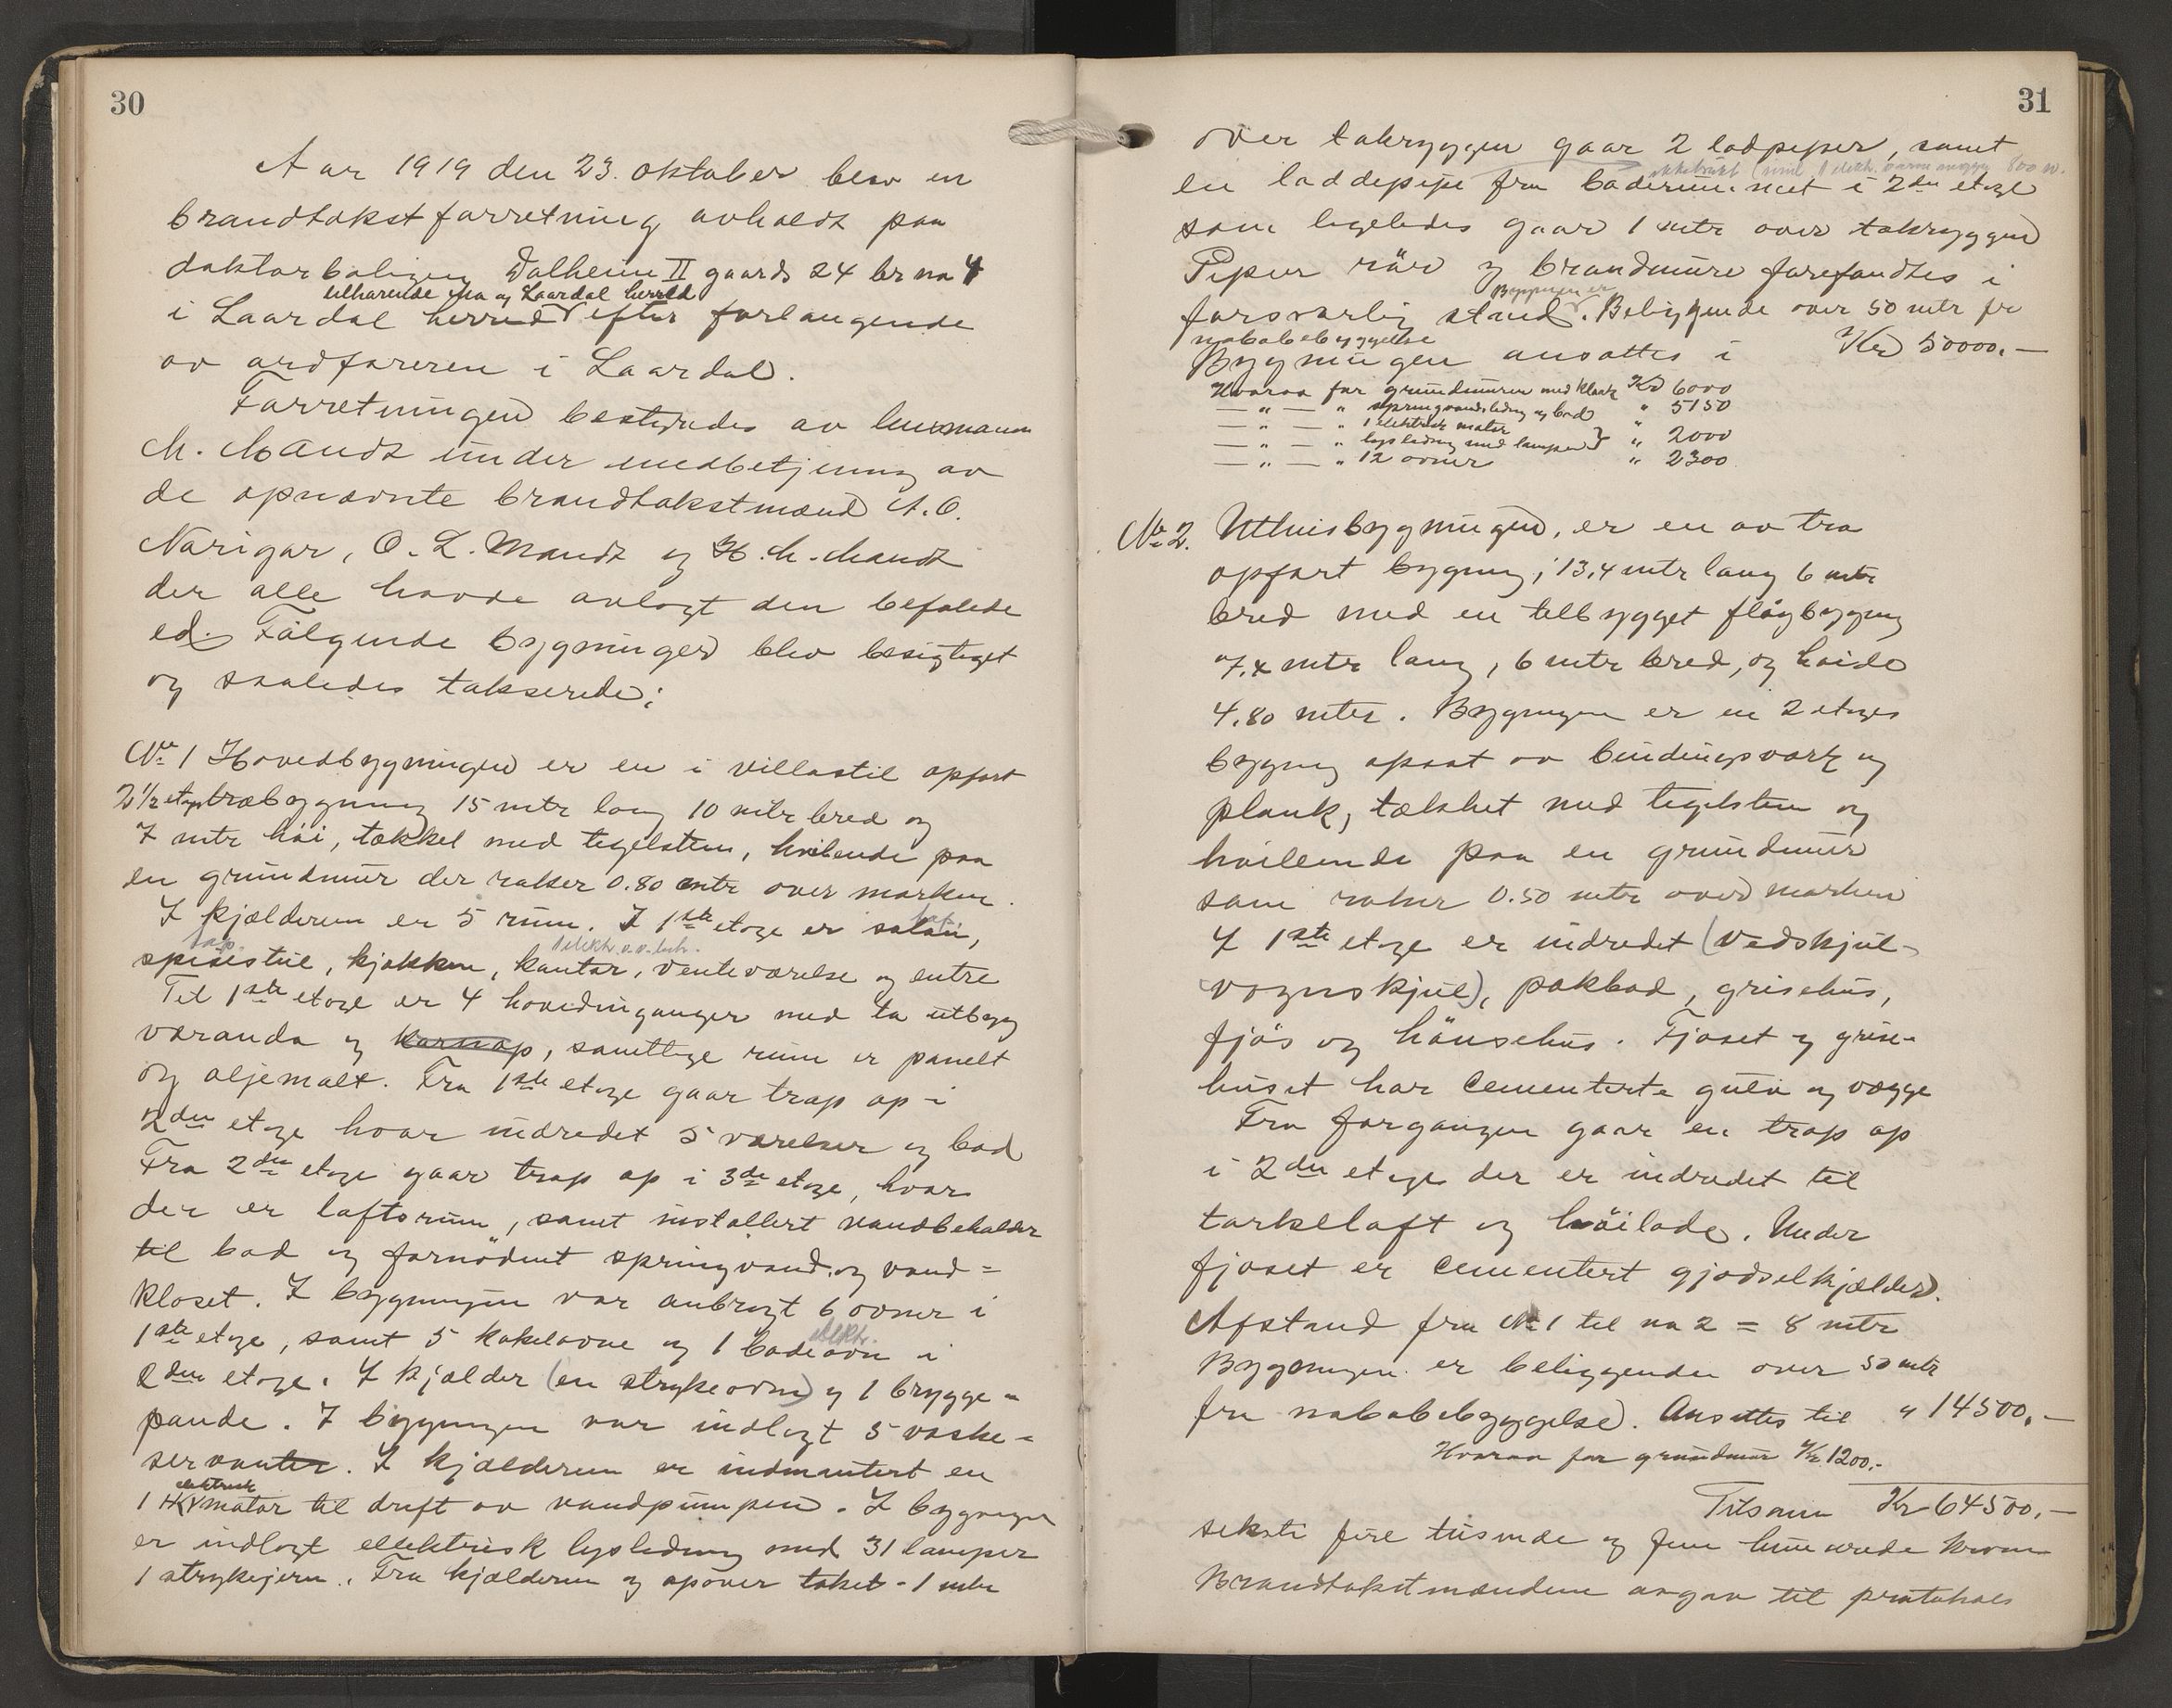 30
Aar 1919 den 23. oktober blev en
brandtakstforretning avholdt paa
doktorboligen Dalheim II gaards 24 br no 4
tilhørende Mo og Laardal herred
i Laardal herred efter forlangende
av ordføreren i Laardal.
Forretningen bestyrdes av lensmann
M. Mandt under medbetjening av
de opnævnte brandtakstmænd A. O.
Narigar, O. L. Mandt og H. M. Mandt
der alle havde avlagt den befalede
ed. Følgende bygninger blev besigtiget
og saaledes takserede:
No 1 Hovedbygningen er en i villastil opført
2 1/2 etages træbygning 15 mtr lang 10 mtr bred og
7 mtr høi, tækket med tegelsten, hvilende paa
en grundmur der rakser 0.80 mtr over marken.
I kjælderen er 5 rum. I 1ste etage er salon,
tap.
tap.
elektr. v.v.
spisestue, kjøkken, kontor, venteværelse og entre
Til 1ste etage er 4 hovedinganger med to utbygg
varanda og karnap, samtlige rum er panelt
og oljemalt. Fra 1ste etage gaar trap op i
2den etage hvor indredet 5 værelser og bad
Fra 2den etage gaar trap op i 3de etage, hvor
der er loftsrum, samt installert vandbeholder
til bad og fornødent springvand og vand=
kloset. I bygningen var anbragt 6 ovner i
1ste etage, samt 5 kakelovne og 1 badeovn i
elektr.
2den etage. I kjælder (en strykeovn) og 1 brygge=
pande. I bygningen var indlagt 5 vaske=
servanter. I kjælderen er indmontert en
elektrisk
1 HK motor til drift av vandpumpen. I bygningen
er indlagt ellektrisk lysledning med 31 lamper
1 strykejern. Fra kjælderen og opover taket 1 mtr
31
over takryggen gaar 2 lodpiper, samt
ikke brukt (inst. 1 elektr. varmeanlegg 800 w.
en loddepipe fra baderummet i 2den etage
som ligeledes gaar 1 mtr over takryggen
Piper rör og brandmure forefandtes i
Bygningen er
forsvarlig stand. Beliggende over 50 mtr fr
nabobebyggelse
Bygningen ansattes i Kr 50000.—
Hvorav for grundmuren med kloak Kr 6000
— " — " springvandsledng og bad " 5150
— " — " 1 elektrisk motor "
— " — " lysledning med lamper } " 2000
— " — " 12 ovner " 2300
No 2. Uthusbygningen, er en av træ
opført bygning, 13,4 mtr lang 6 mtr
bred med en tilbygget fløybygning
7.4 mtr lang, 6 mtr bred, og høide
4.80 mter. Bygningen er en 2 etages
bygning opsat av bindingsverk og
plank, tækket med tegelsten og
hvilende paa en grundmur
som raker 0.50 mtr over marken
I 1ste etage er indredet (vedskjul-
vognskjul), pakbod, grisehus,
fjös og hönsehus. Fjøset og grise-
huset har cementerte gulv og vægge
Fra forgangen gaar en trap op
i 2den etage der er indredet til
tørkeloft og höilade. Under
fjøset er cementert gjødselkjælder.
Afstand fra No 1 til no 2 = 8 mtr
Bygningen er beliggende over 50 mtr
fra nabobebyggelse. Ansættes til " 14500.—
Hvorav for grundmur Kr. 1200.-
Tilsam Kr 64500.—
seksti fire tusinde og fem hundrede kroner
Brandtakstmændene avgav til protokols